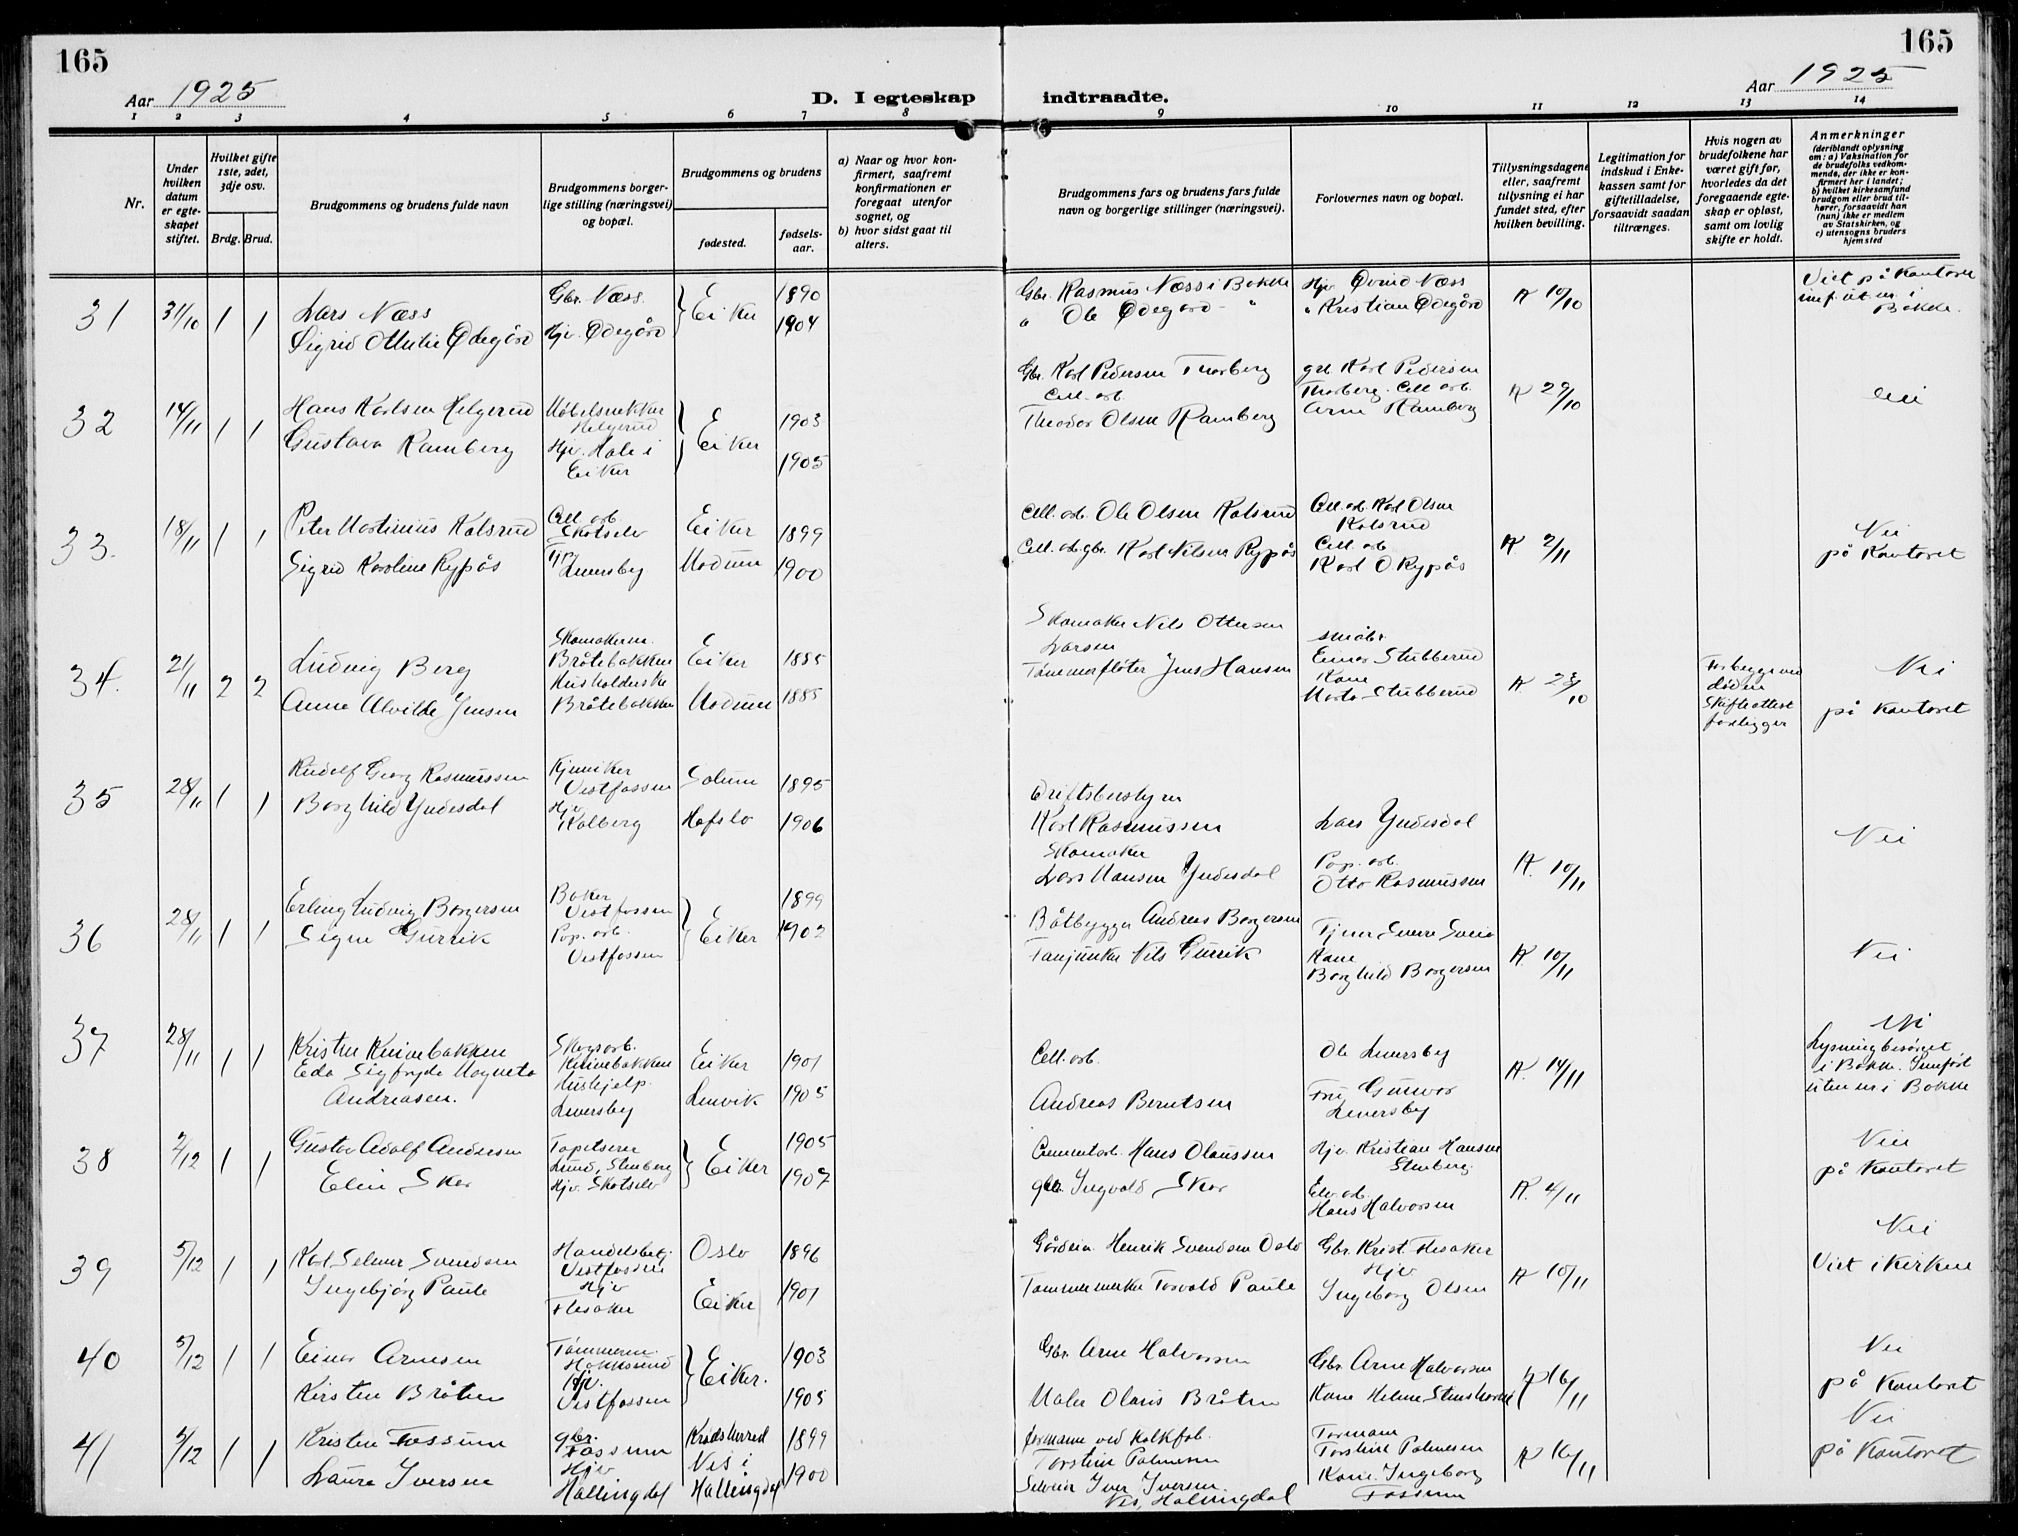 165
165
Aar 1925
D. I egteskap
indtraadte.
Aar 1925
1 2 3 4 5 6 7 8 9 10 11 12 13 14
Nr.
Under hvilken datum er egteskapet stiftet.
Hvilket gifte 1ste, 2det, 3dje osv.
Brdg. Brud.
Brudgommens og brudens fulde navn
Brudgommens borgerlige stilling (næringsvei) og bopæl.
Brudgommens og brudens
fødested.
fødselsaar.
a) Naar og hvor konfirmert, saafremt konfirmationen er foregaat utenfor sognet, og
b) hvor sidst gaat til alters.
Brudgommens fars og brudens fars fulde navn og borgerlige stillinger (næringsvei).
Forlovernes navn og bopæl.
Tillysningsdagene eller, saafremt tillysning ei har fundet sted, efter hvilken bevilling.
Legitimation for indskud i Enkekassen samt for giftetilladelse, forsaavidt saadan tiltrænges.
Hvis nogen av brudefolkene har været gift før, hvorledes da det foregaaende egteskap er opløst, samt om lovlig skifte er holdt.
Anmerkninger
(deriblandt oplysning om: a) Vaksination for de brudefolks vedkommende, der ikke er konfirmert her i landet; b) hvilket kirkesamfund brudgom eller brud tilhører, forsaavidt han (hun) ikke er medlem av Statskirken, og c) utensogns bruders hjemsted
31 31/10 1 1
Lars Næss
Sigrid Othilie Ødegård
Gbr. Næss.
Hjv. Ødegård
Eiker
1890
1904
Gbr. Rasmus Næss i Bakke
" Ole Ødegård - "
Hjv Øvind Næss
" Kristian Ødegård
K 10/10
Viet på Kontoret
Bakke.
32 14/11 1 1
Hans Karlsen Helgerud
Gustava Ramberg
Møbelsnekker
Helgerud
Hjv. Hole i
Eiker
Eiker
1903
1905
Gbr. Karl Pedersen Thorberg
Cell. arb.
Theodor Olsen Ramberg
gbr Karl Pedersen
Thorberg. Cell arb.
Arne Ramberg
K 29/10
33. 18/11 1 1
Peter Martinius Kolsrud
Sigrid Karoline Rypås
Cell. arb.
Skotselv
Leversby
Eiker
Modum
1899
1900
Cell. arb. Ole Olsen Kolsrud
Cell. arb. gbr. Karl Nilsen Rypås
Cell. arb. Karl Olsen
Kolsrud
Cell. arb
Karl O Rypås
K. 2/11
Nei
på Kontoret
34. 21/11 2 2
Ludvig Berg
Anna Alvilde Jensen
Skomakerm.
Bråtebakken
Husholderske
Bråtebakken
Eiker
Modum
1885
1885
Skomaker Nils Ottersen
Larsen
Tømmerfløter Jens Hansen
småbr
Einar Stubberud
Kone
Marta Stubberud
K 23/10
Forbygge ved
døden
Skifteattest
foreligger
Nei
på Kontoret
35 28/11 1 1
Rudolf Georg Rasmussen
Borghild Yndesdal
Kjemiker
Vestfossen
Hjv
Kolberg
Solum
Hafslo
1895
1906
Driftsbestyrer
Karl Rasmussen
Skomaker
Lars Hansen Yndesdal
Lars Yndesdal
Pap. arb.
Otto Rasmussen
K. 10/11
Nei
36 28/11 1 1
Erling Ludvig Borgersen
Signe Gurrik
Baker
Vestfossen
Pap. arb.
Vestfossen
Eiker
1899
1902
Båtbygger Andreas Borgersen
Fanjunker Nils Gurrik
Kone
Borghild Borgersen
K. 10/11
Nei
37 28/11 1 1
Kristen Knivebakken
Eda Sigfryda Magneta
Andreasen.
Skogsarb.
Knivebakken
Hushjelp.
Leversby
Eiker
Lenvik
1901
1905
Cell. arb.
Andreas Berntsen
Ole Leversby
Fru Gunvor
Leversby
K. 14/11
Nei
Lysning besørget
i Bakke. Innført
uten nr i Bakke
38 2/12 1 1
Gustav Adolf Andersen
Elin Skar
Tapetserer
Lund, Stenberg
Hjv. Skotselv
Eiker
1905
1907
Cementarb. Hans Olaussen
gbr. Ingvald Skar
Hjv. Kristian Hansen
Stenberg.
Elv. arb.
Hans Halvorsen
K. 4/11
Nei
på Kontoret
39 5/12 1 1
Karl Selmer Svendsen
Ingebjørg Paule
Handelsbetj.
Vestfossen
Hjv
Flesaker
Oslo
Eiker
1896
1901
Gårdeier Henrik Svendsen Oslo
Tømmermerker Torvald Paule
Gbr. Krist. Flesaker
Hjv
Ingeborg Olsen
K 10/11
Nei
Viet i kirken
40 5/12 1 1
Einar Arnesen
Kirsten Bråten
Tømmerm.
Hokksund
Hjv.
Vestfossen
Eiker.
1903
1905
Gbr. Arne Halvorsen
Maler Olaus Bråten
Gbr. Arne Halvorsen
K 16/11
Nei
på Kontoret
41 5/12 1 1
Kristen Fossum
Laura Iversen
gbr.
Fossum
Hjv
Hallingdal
Krødsherred
Nes i
Hallingdal
1899
1900
formann ved Kalkfab.
Torstein Palmesen
Selveier Iver Iversen
Nes, Hallingdal
Formann
Torstein Palmesen
Kone. Ingeborg
Fossum
K 16/11
Nei
på Kontoret